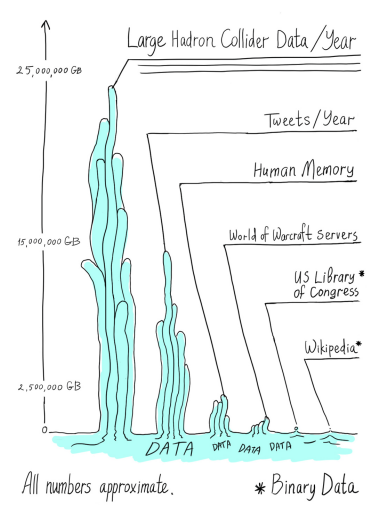 Large Hadron Collider Data/Year
25,000,000 GB
Tweets/Year
Human Memory
World of Warcraft Servers
15,000,000 GB
US Library *
of Congress
Wikipedia*
2,500,000 GB
0
DATA DATA DATA DATA
All numbers approximate.
* Binary Data